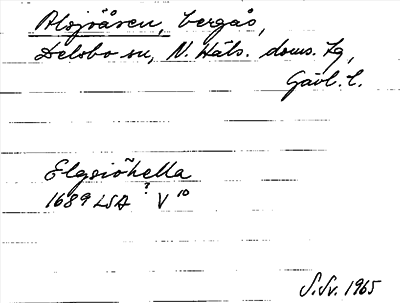 Alsjöåsen, bergås,
Delsbo sn, N. Häls. doms. tg,
Gävl. l.
Elgsiöhella
1689 LSA ? V 10
S. Sv. 1965